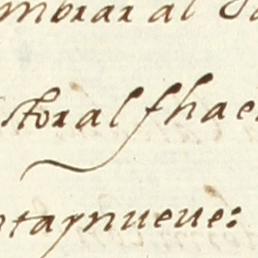 ombrar al
storal shae
ntaynueue: